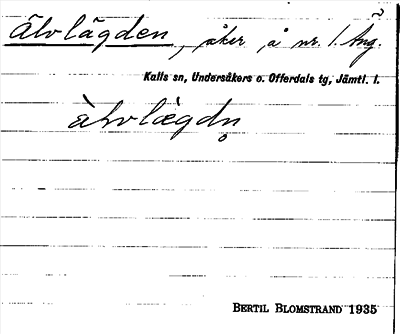 Älvlägden, åker å nr. 1. Äng.
Kalls sn, Undersåkers o. Offerdals tg, Jämtl. l.
ä̀lvlä̀gdn̥
BERTIL BLOMSTRAND 1935